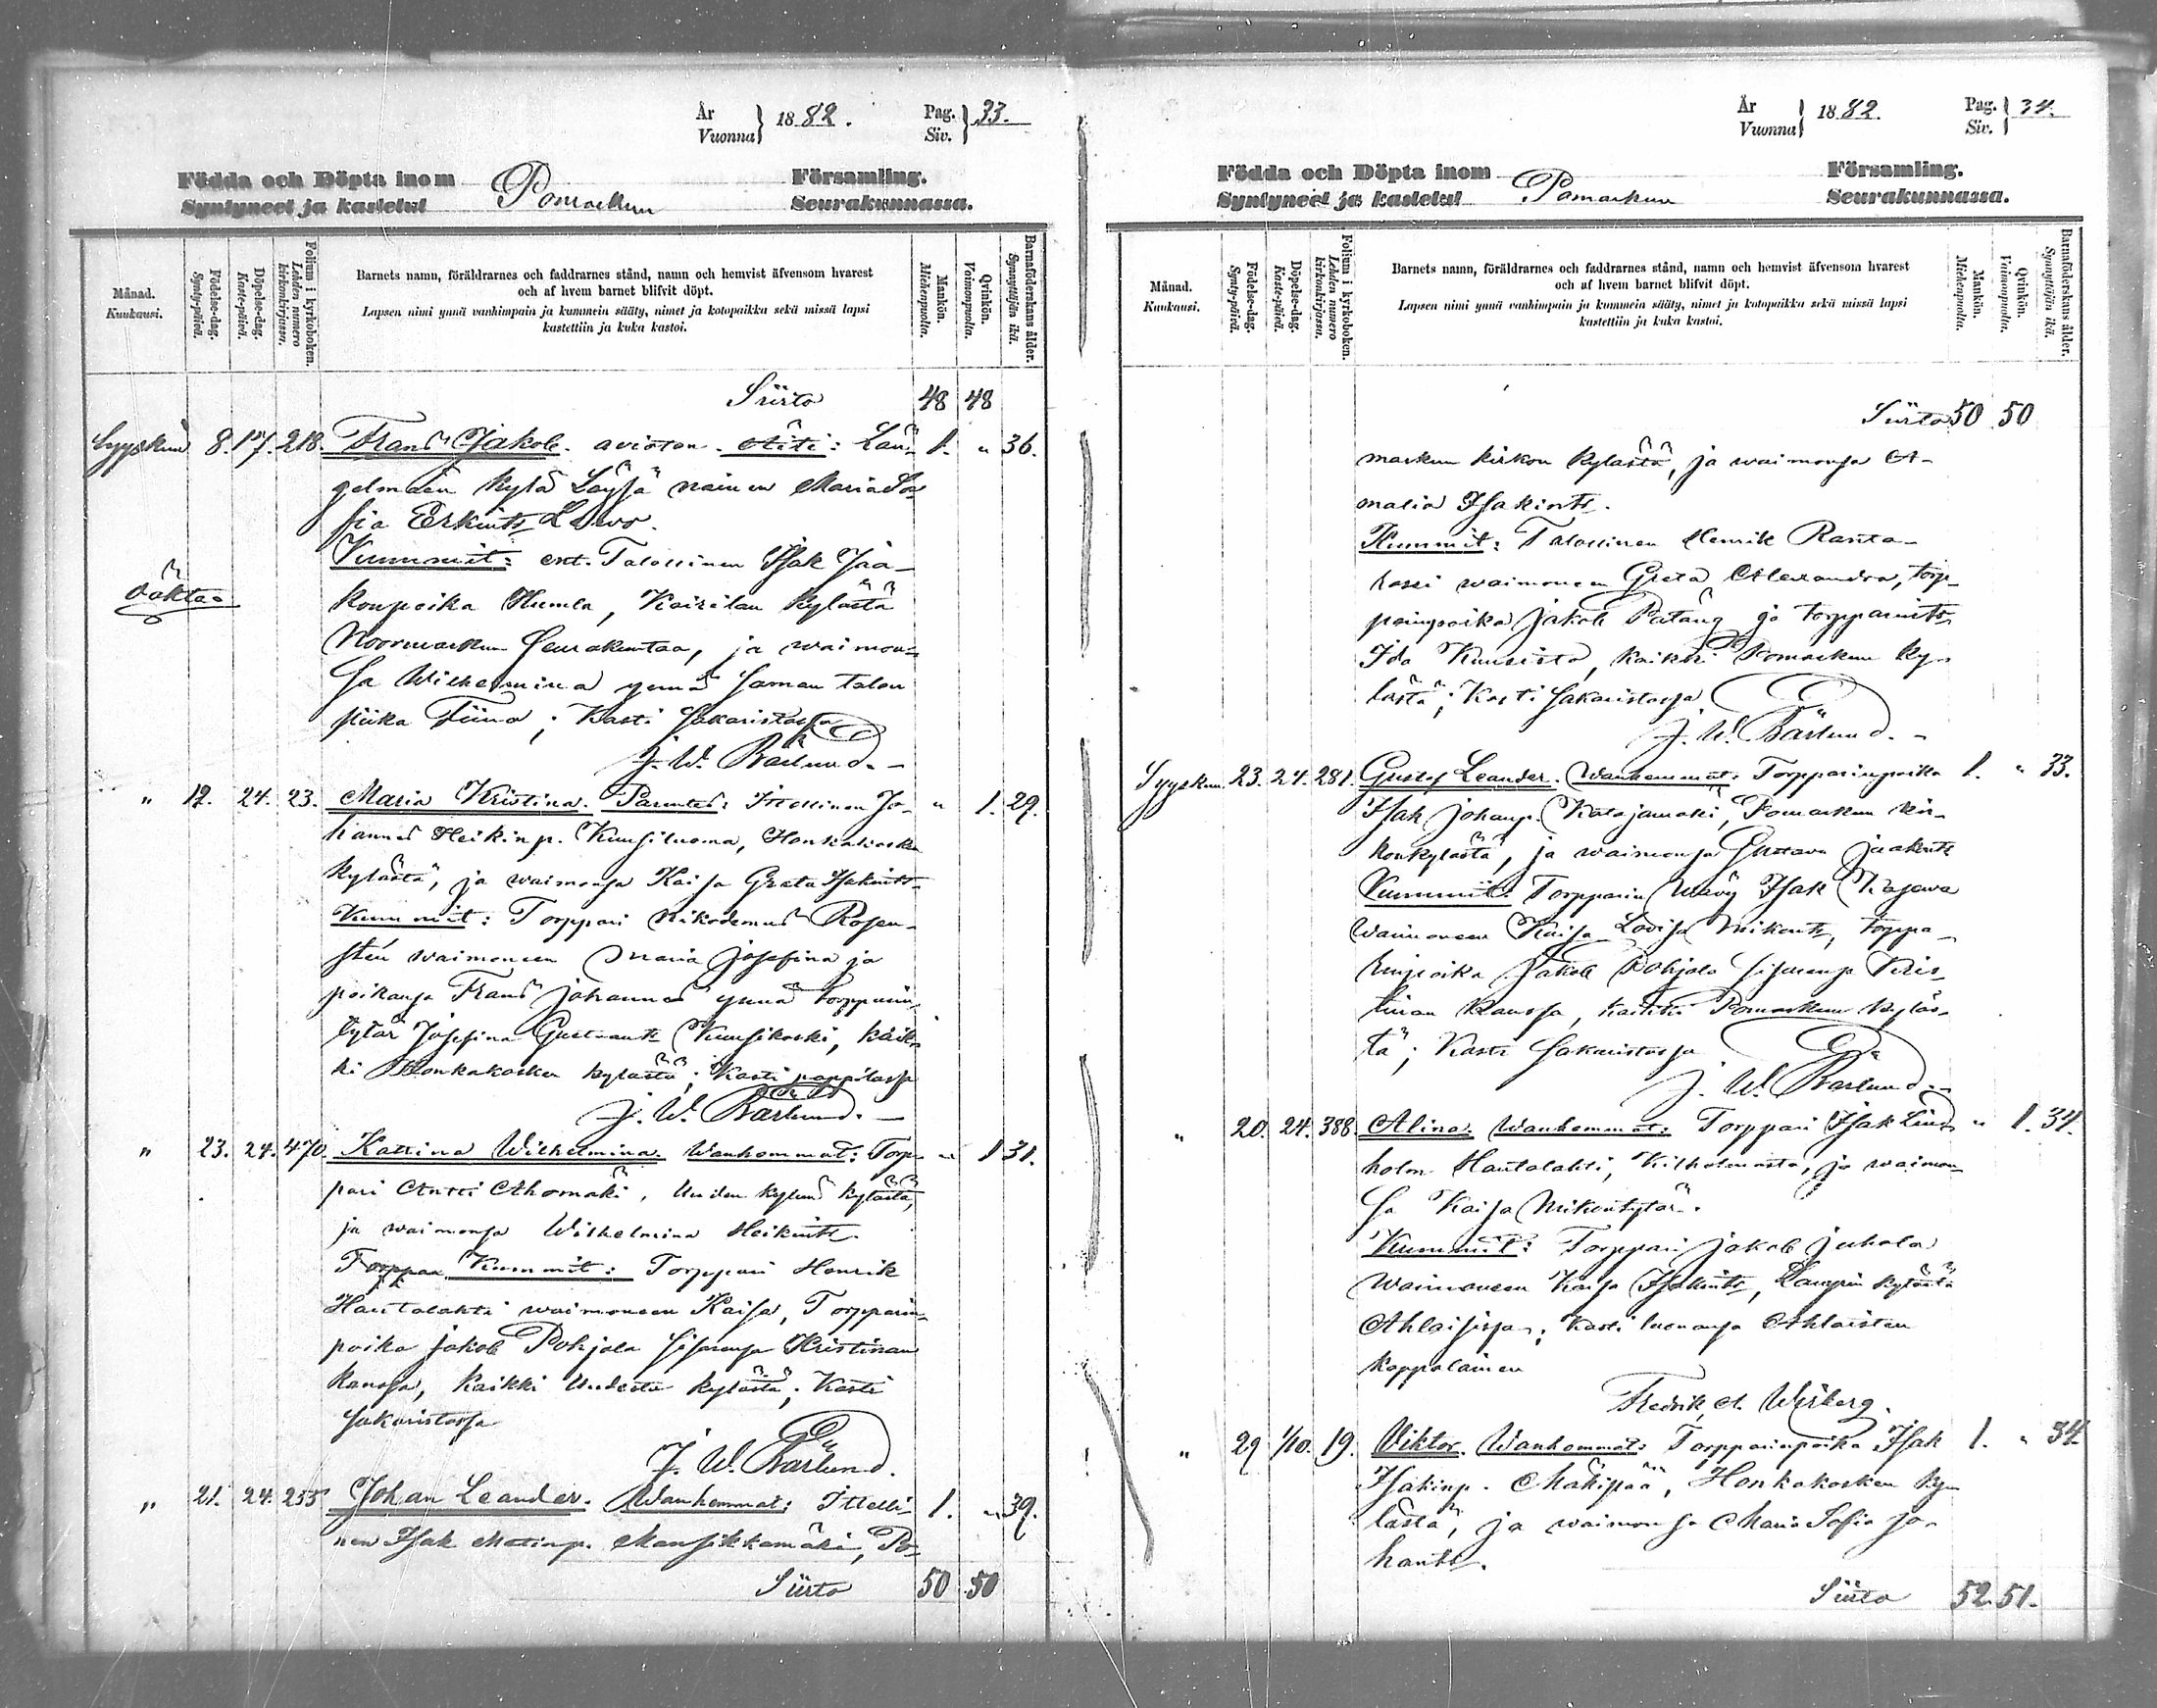 År
Vuonna } 1882.
Pag.
Siv. } 33.
Födda och Döpta inom Församling.
Syntyneet ja kastetut Pomarkun Seurakunnassa.
Månad.
Kuukausi.
Födelse-dag.
Synty-päivä.
Döpelse-dag.
Kaste-päivä.
Folium i kyrkoboken.
Lehden numero kirkonkirjassa.
Barnets namn, föräldrarnes och faddrarnes stånd, namn och hemvist äfvensom hvarest
och af hvem barnet blifvit döpt.
Lapsen nimi ynnä vanhimpain ja kummein sääty, nimet ja kotopaikka sekä missä lapsi
kastettiin ja kuka kastoi.
Mankön.
Miehenpuolta.
Qvinkön.
Vaimonpuolta.
Barnaföderskans ålder.
Synnyttäjän ikä.
Siirto 48 48
Syyskuu 8. 17. 218. Frans Jakob. avioton. Äiti: 1. " 36.
kylä nainen Maria So-
fia Erkints
Kummit: ent. Talollinen Isak Jaa-
koupoika Humla, Kairilan kylästä
Noormarkun Seurakuntaa, ja waimon-
sa Wilhelmina ynnä saman talon
piika Fiina; Kasti sakaristossa
J. W. Bärlund.
Oäkta
" 12. 24. 23. Maria Kristina. Itsellinen Jo- " 1. 29.
hannes Heikinp. Kuusiluoma, Honkakosken
kylästä, ja waimonsa Kaisa Greta Isakints.
Kummit: Torppari Nikodemus Rosen-
stén waimoneen Maria Josefina ja
poikansa Frans Johannes ynnä torpparin
tytär Josefina Gustaants Kuusikoski, kaik-
ki Honkakosken kylästä; Kasti pappilassa
J. W. Bärlund.
" 23. 24. 470. Katrina Wilhelmina. Wanhemmat: Torp- " 1 31.
pari Antti Ahomäki, Uuden kylän kylästä,
ja waimonsa Wilhelmina Heikints.
Kummit: Torppari Henrik
Hautalahti waimoneen Kaisa, Torpparin-
poika Jakob Pohjola sisarensa Kristinan
kanssa, kaikki Uudesta kylästä; Kasti
sakaristossa
J. W. Bärlund.
" 21. 24. 255 Johan Leander. Wanhemmat: Itselli- 1. " 39.
nen Isak Matinp. Mansikkamäki, Po-
Siirto 50 50
År
Vuonna } 1882.
Pag.
Siv. } 34.
Födda och Döpta inom Församling.
Syntyneet ja kastetut Pomarkun Seurakunnassa.
Månad.
Kuukausi.
Födelse-dag.
Synty-päivä.
Döpelse-dag.
Kaste-päivä.
Folium i kyrkoboken.
Lehden numero kirkonkirjassa.
Barnets namn, föräldrarnes och faddrarnes stånd, namn och hemvist äfvensom hvarest
och af hvem barnet blifvit döpt.
Lapsen nimi ynnä vanhimpain ja kummein sääty, nimet ja kotopaikka sekä missä lapsi
kastettiin ja kuka kastoi.
Mankön.
Miehenpuolta.
Qvinkön.
Vaimonpuolta.
Barnaföderskans ålder.
Synnyttäjän ikä.
Siirto 50 50
markun kirkon kylästä, ja waimonsa A-
malia Isakints.
Kummit: Talollinen Henrik Ranta-
waimoneen Greta Alexandra, torp-
parinpoika Jakob Patäng ja torpparints
Ida Kuusisto, kaikki Pomarkun ky-
lästä; Kasti Sakaristossa
J. W. Bärlund.
Syyskuu. 23. 24. 281. Gustaf Leander. Wanhemmat: Torpparinpoika 1. " 33.
Isak Johanp. Katajamäki, Pomarkun kir-
konkylästä, ja waimonsa Gustava Jaakints
Kummit: Torpparin Wävy Isak Kajawa
Waimoneen Kaisa Lovisa Mikints, torppa-
rinpoika Jakob Pohjola sisarensa Kris-
tinan kanssa, kaikki Pomarkun kyläs-
tä; Kasti Sakaristossa
J. W. Bärlund.
" 20. 24. 388. Alina. Wanhemmat: Torppari Isak Lind- " 1. 34.
holm Hautalahti, Kilholmasta, ja waimon-
sa Kaisa Mikontytär.
Kummit: Torppari Jakob Juhola
Waimoneen Kaisa Isakints, Lampin kylästä
Ahlaisissa; Kasti luonansa Ahlaisten
kappalainen
Fredrik A. Wirberg.
" 29 1/10. 19. Viktor. Wanhemmat: Torpparinpoika Isak 1. " 34.
Isakinp. Mäkipää, Honkakosken ky-
lästä, ja waimonsa Maria Sofia Jo-
hants.
Siirto 52. 51.